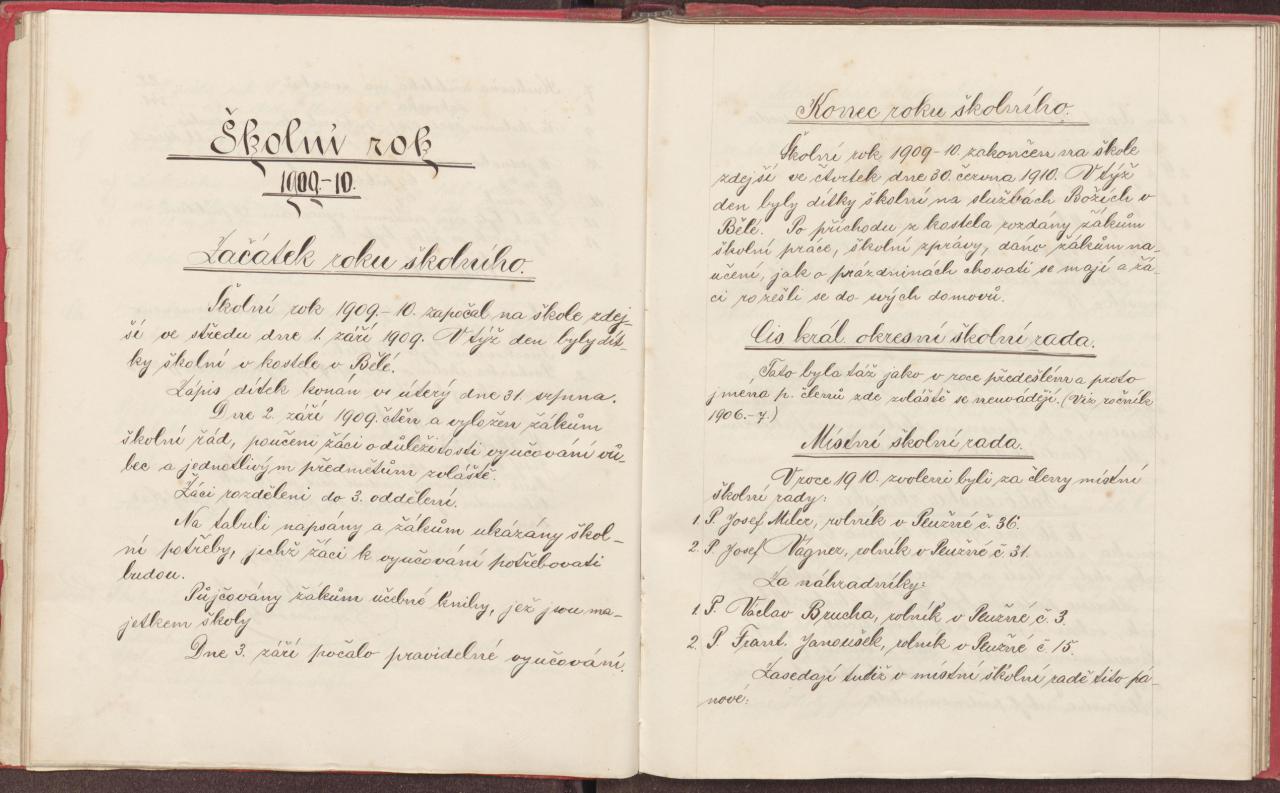 Školní rok
1909.-10.
Začátek roku školního.
Školní rok 1909.-10. započal na škole zdej-
ší ve středu dne 1. září 1909. V týž den byly dít-
ky školní v kostele v Bělé.
Zápis dítek konán ve úterý dne 31. srpna.
Dne 2. září 1909. čtěn a vyložen žákům
školní řád, poučeni žáci o důležitosti vyučování vů-
bec a jednotlivým předmětům zvláště.
Žáci rozděleni do 3. oddělení.
Na tabuli napsány a žákům ukázány škol-
ní potřeby, jichž žáci k vyučování potřebovati
budou.
Půjčovány žákům učebné knihy, jež jsou ma-
jetkem školy
Dne 3. září počalo pravidelné vyučování.
Konec roku školního.
Školní rok 1909-10. zakončen na škole
zdejší ve čtvrtek dne 30. června 1910. V týž
den byly dítky školní na službách Božích v
Bělé. Po příchodu z kostela rozdány žákům
školní práce, školní zprávy, dáno žákům na-
učení, jak o prázdninách chovati se mají a žá-
ci rozešli se do svých domovů.
Cis. král. okresní školní rada.
Tato byla táž jako v roce předešlém a proto
jména p. členů zde zvláště se neuvádějí. (Viz ročník
1906.-7.)
Místní školní rada.
V roce 1910. zvoleni byli za členy místní
školní rady:
1. P. Josef Miler, rolník v Peužné č. 36.
2. P. Josef Vágner, rolník v Peužné č. 31.
Za náhradníky:
1. P. Václav Brucha, rolník v Peužné č. 3.
2. P. Frant. Janoušek, rolník v Peužné č 15.
Zasedají tudíž v místní školní radě tito pá-
nové: